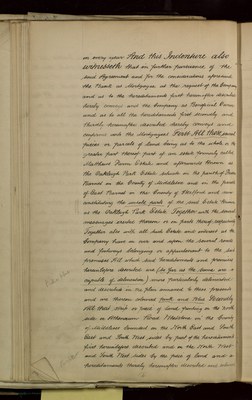 in every view And this Indenture also
witnesseth that in further pursuance of the
said Agreement and for the consideration aforesaid
the Bank as Mortgagees at the request of the Company
and as to the hereditaments first hereinafter described
hereby conveys and the Company as Beneficial Owner
and as to all the hereditaments first secondly and
thirdly hereinafter described hereby conveys and
confirms unto the Mortgagees First All those several
pieces or parcels of land being as to the whole or
greater part thereof part of an estate formerly called
Matthews Farm Estate and afterwards known as
the Oakleigh Park Estate situate in the parish of Friern
Barnet in the County of Middlesex and in the parish
of East Barnet in the County of Hertford and now
constituting the unsold parts of the said Estate known
as the Oakleigh Park Estate Together with the several
messuages erected thereon or on parts thereof respectively
Together also with all such Estate and interest as the
Company have in over and upon the several roads
and footways belonging or appurtenant to the said
premises All which said hereditaments and premises
hereinbefore described are (so far as the same are
capable of delineation) more particularly delineated
and described in the plan annexed to these presents
and are thereon coloured pink and blue Secondly
All that piece or parcel of land fronting on the North
side of Athenaeum Road Whetstone in the County
of Middlesex bounded on the North East and South
East and North West sides by part of the hereditaments
first hereinbefore described and on the North West
and South West sides by the piece of land and
hereditaments thirdly hereinafter described and which